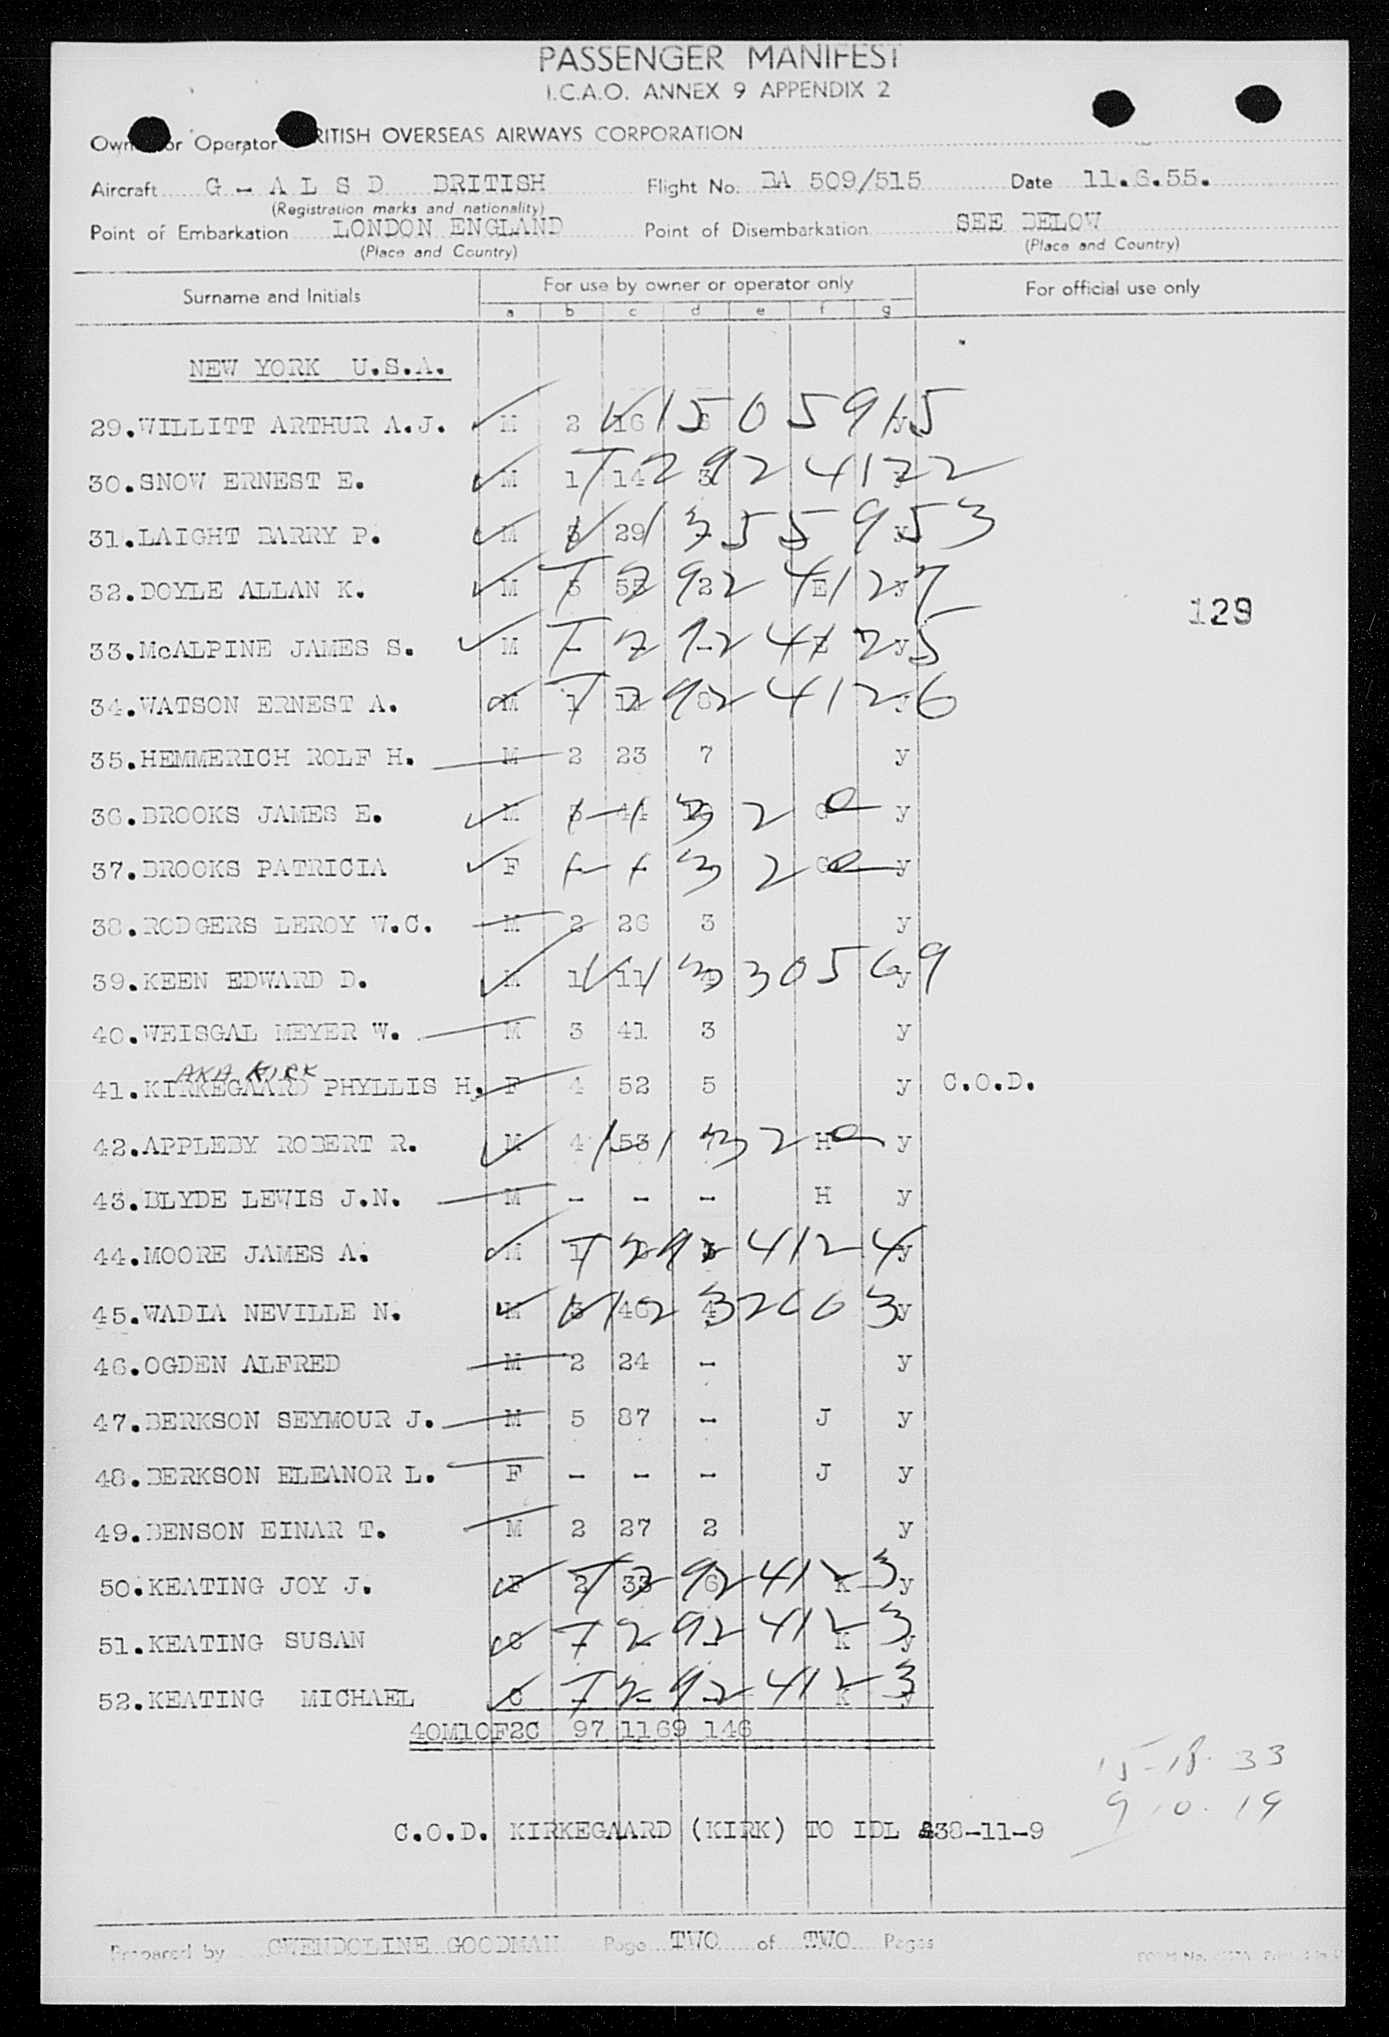 PASSENGER MANIFEST
I.C.A.O. ANNEX 9 APPENDIX 2
Owner or Operator BRITISH OVERSEAS AIRWAYS CORPORATION
Aircraft G - A L S D BRITISH Flight No. BA 509/515 Date 11.6.55.
(Registration marks and nationality)
Point of Embarkation LONDON ENGLAND Point of Disembarkation SEE BELOW
(Place and Country) (Place and Country)
Surname and Initials For use by owner or operator only For official use only
a b c d e f g
NEW YORK U.S.A.
29.WILLITT ARTHUR A.J. M 2 16 V1505915 y
30.SNOW ERNEST E. M 1 14 3 T2924122
31.LAIGHT BARRY P. M 29 V1355953 y
32.DOYLE ALLAN K. M 2 E T2924127 y
33.McALPINE JAMES S. M - - - T2924125 y
34.WATSON ERNEST A. M 1 T2924126
35.HEMMERICH ROLF H. M 2 23 7 y
36.BROOKS JAMES E. M 44 G y
37.BROOKS PATRICIA F G y
38.RODGERS LEROY W.C. M 2 26 3 y
39.KEEN EDWARD D. M 1 11 y
40.WEISGAL MEYER W. M 3 41 3 y
AKA KIRK
41.KIRKEGAARD PHYLLIS H. F 4 52 5 y C.O.D.
42.APPLEBY ROBERT R. M 4 53 H y
43.BLYDE LEWIS J.N. M - - - H y
44.MOORE JAMES A. M 1 T2924124 y
45.WADIA NEVILLE N. M 3 46 4 y
46.OGDEN ALFRED M 2 24 - y
47.BERKSON SEYMOUR J. M 5 87 - J y
48.BERKSON ELEANOR L. F - - - J y
49.BENSON EINAR T. M 2 27 2 y
50.KEATING JOY J. F 2 33 6 K T2924123 y
51.KEATING SUSAN C - - - K T2924123 y
52.KEATING MICHAEL C - - - K T2924123 y
40M10F2C 97 1169 146
129
15-18-33
9.10.19
C.O.D. KIRKEGAARD (KIRK) TO IDL £38-11-9
Prepared by GWENDOLINE GOODMAN Page TWO of TWO Pages